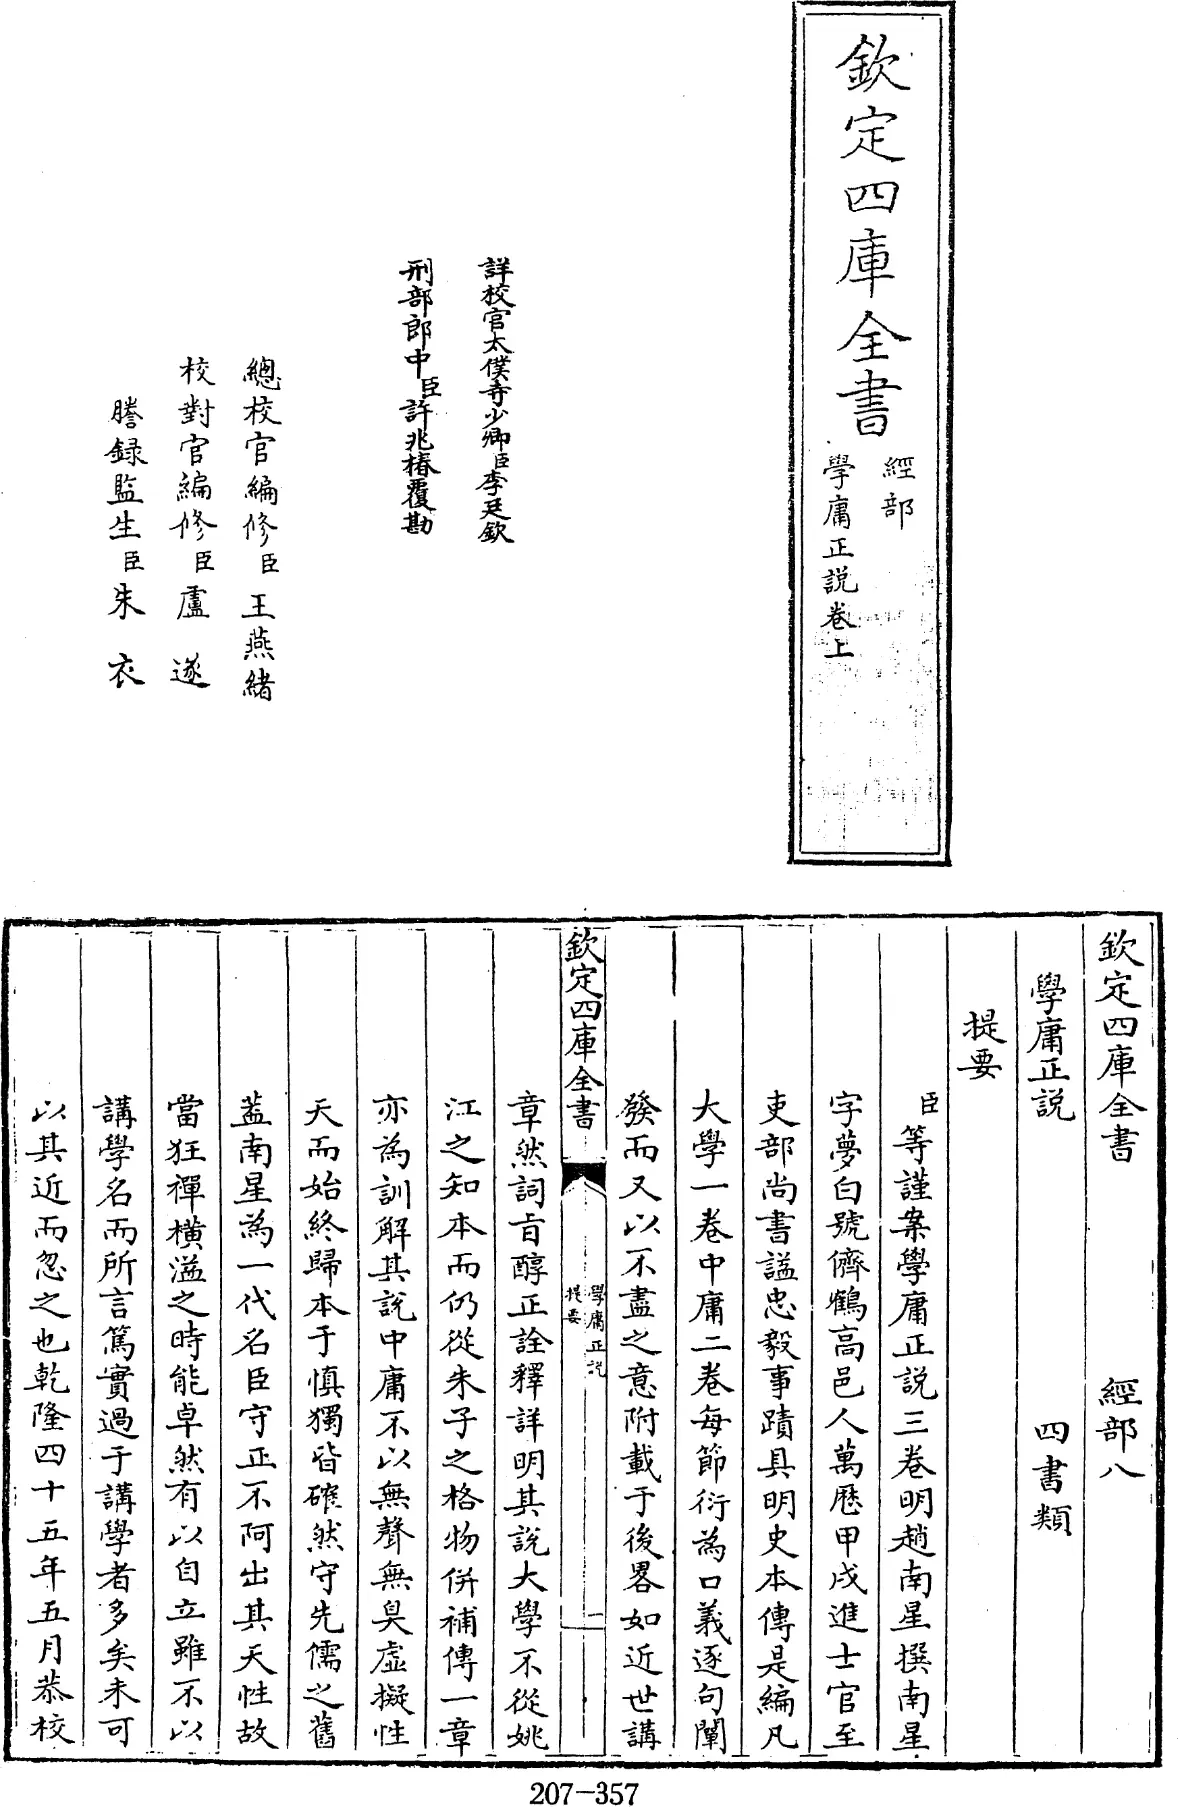 欽定四庫全書
經部
學庸正説卷上
詳校官太僕寺少卿臣李廷欽
刑部郎中臣許兆椿覆勘
總校官編修臣王燕緒
校對官編修臣盧遂
謄録監生臣朱衣
欽定四庫全書 經部八
學庸正説 四書類
提要
臣等謹案學庸正説三卷明趙南星撰南星
字夢白號儕鶴高邑人萬歷甲戌進士官至
吏部尚書諡忠毅事蹟具明史本傳是編凡
大學一卷中庸二卷每節衍為口義逐句闡
發而又以不盡之意附載于後畧如近世講
欽定四庫全書
學庸正説
提要
一
章然詞旨醇正詮釋詳明其説大學不從姚
江之知本而仍從朱子之格物併補傳一章
亦為訓解其説中庸不以無聲無臭虛擬性
天而始終歸本于慎獨皆確然守先儒之舊
葢南星為一代名臣守正不阿出其天性故
當狂禪橫溢之時能卓然有以自立雖不以
講學名而所言篤實過于講學者多矣未可
以其近而忽之也乾隆四十五年五月恭校
207-357